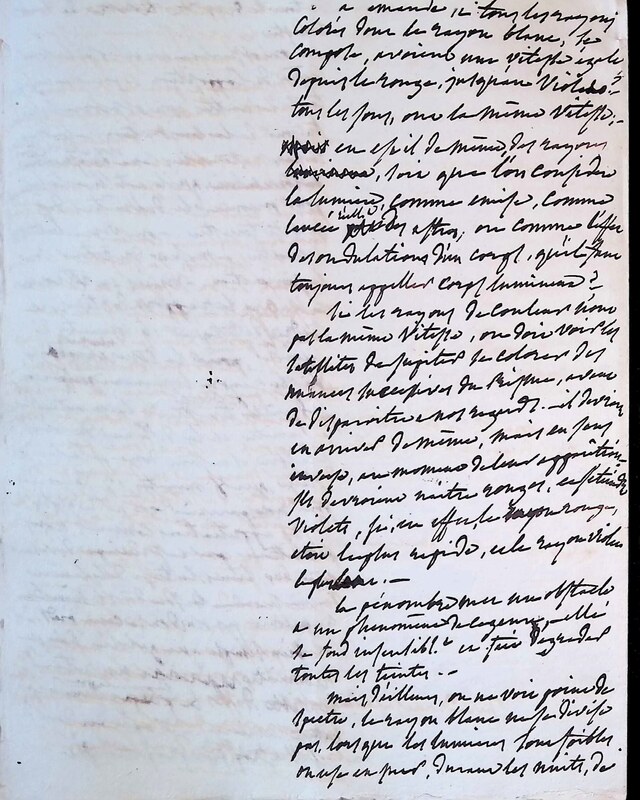 a demandé, si tous les rayons
colorés dont le rayon blanc, se
compose, avoient une vitesse égale
depuis le rouge, jusqu'au violet. -
tous les sons, ont la même vitesse. -
en est-il de même, des rayons
soit que l'on considère
la lumière, comme émise, comme
lancée des astres, ou comme l'effet
des ondulations d'un corps, qu'il faut
toujours appeller corps lumineux?
Si les rayons de couleur n'ont
pas la même vitesse, on doit voir les
satellites de Jupiter se colorer des
nuances successives du Prisme, avant
de disparoitre a nos regards. - il devroit
en arriver de même, mais en sens
inverse, au moment de leur apparition.
Ils devroient naitre rouges, et s'éteindre
violets, si, en effet le rayon rouge,
étoit le plus rapide, et le rayon violet
le plus . -
la pénombre met un obstacle
a un phénomène de ce genre, elle
se fond insensibl.t et fait dégrader
toutes les teintes. -
mais d'ailleurs, on ne voit point de
spectre, le rayon blanc ne se divise
pas, lorsque les lumieres sont foibles
on use en mer, durant les nuits, de